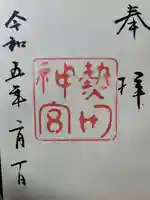 奉拝
熱田
神宮
令和五年月日